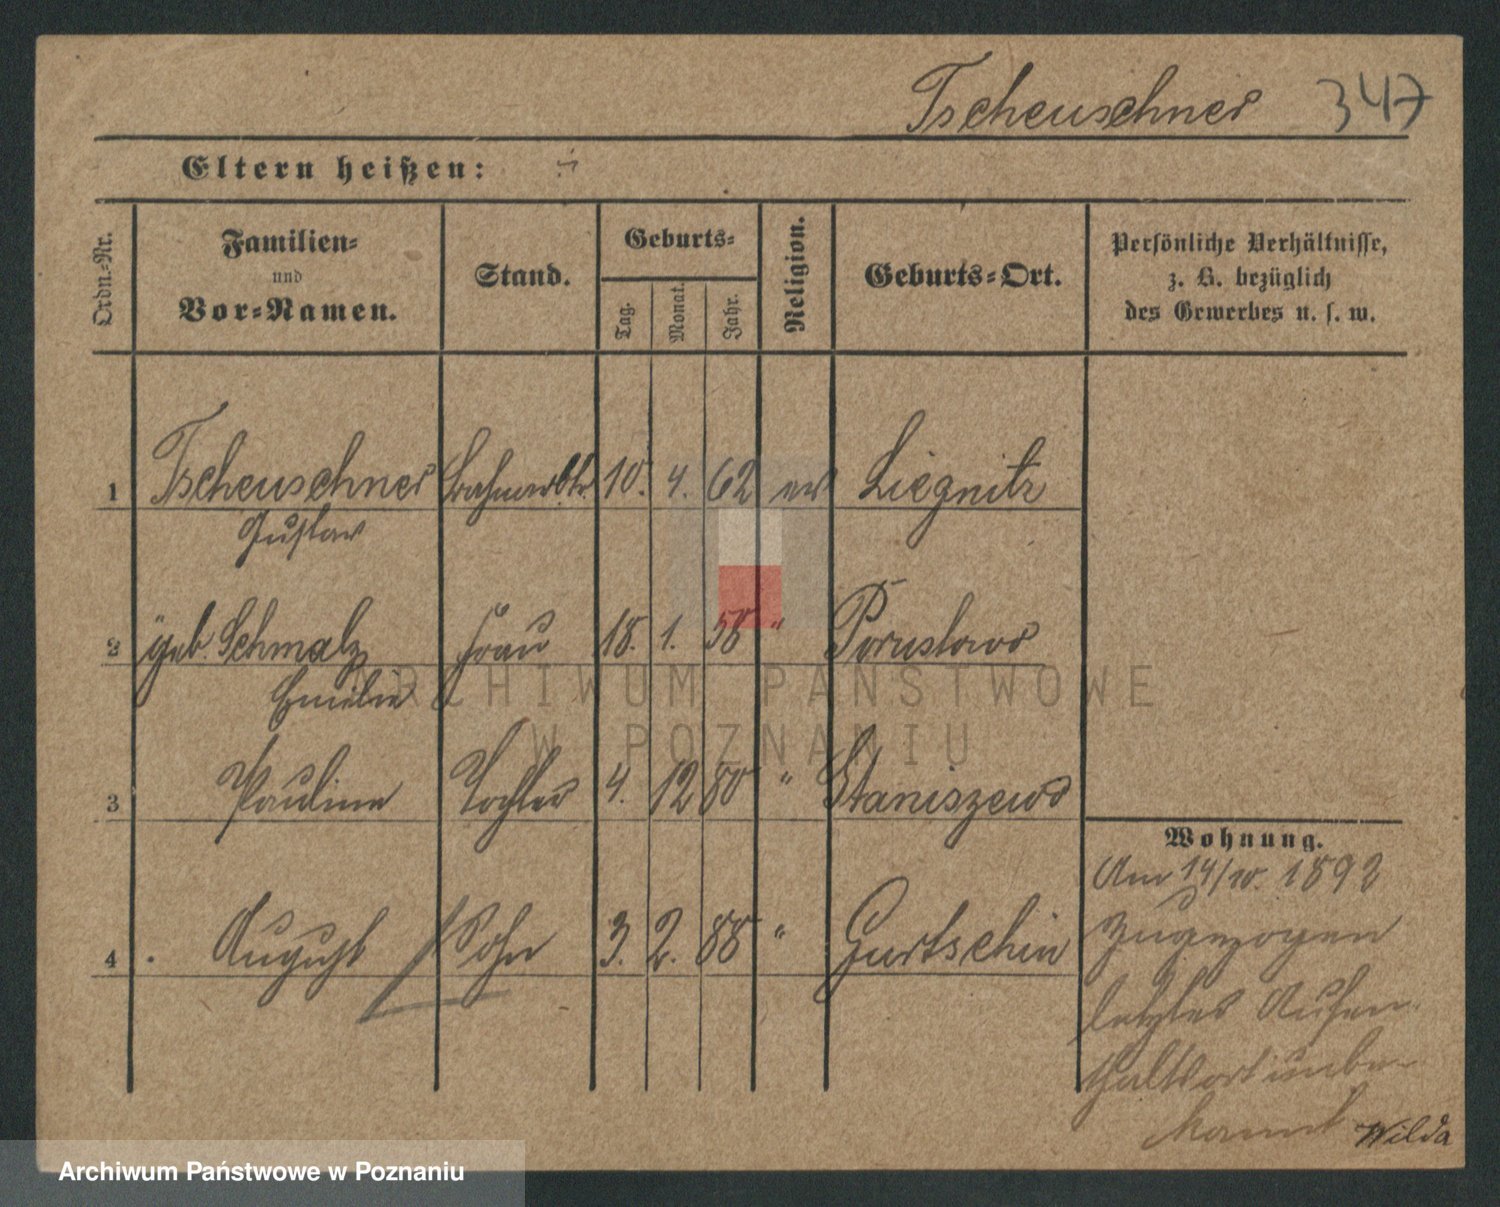 Tscheuschner 347
Eltern heißen:
Ordn.-Nr.
Familien-
und
Vor-Namen.
Stand.
Geburts-
Tag.
Monat.
Jahr.
Religion.
Geburts-Ort.
Persönliche Verhältnisse,
z. B. bezüglich
des Gewerbes u. s. w.
1 Tscheuschner 10. 4. 62 ev Liegnitz
Gustav
2 geb. Schmalz Frau 18. 1. 58 "
Emilie
3 Pauline Tochter 4. 12 80 " Staniszewo
4 August Sohn 3. 2. 88 " Gurtschin
Wohnung.
Am 14/10. 1892
zugezogen
letzter Aufen-
thaltsort unbe-
kannt Wilda
ARCHIWUM PAŃSTWOWE
W POZNANIU
Archiwum Państwowe w Poznaniu